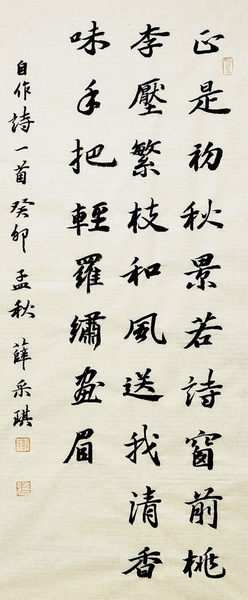 正是初秋景若詩窗前桃
李壓繁枝和風送我清香
味手把輕羅繡画眉
自作詩一首癸卯孟秋薛采琪